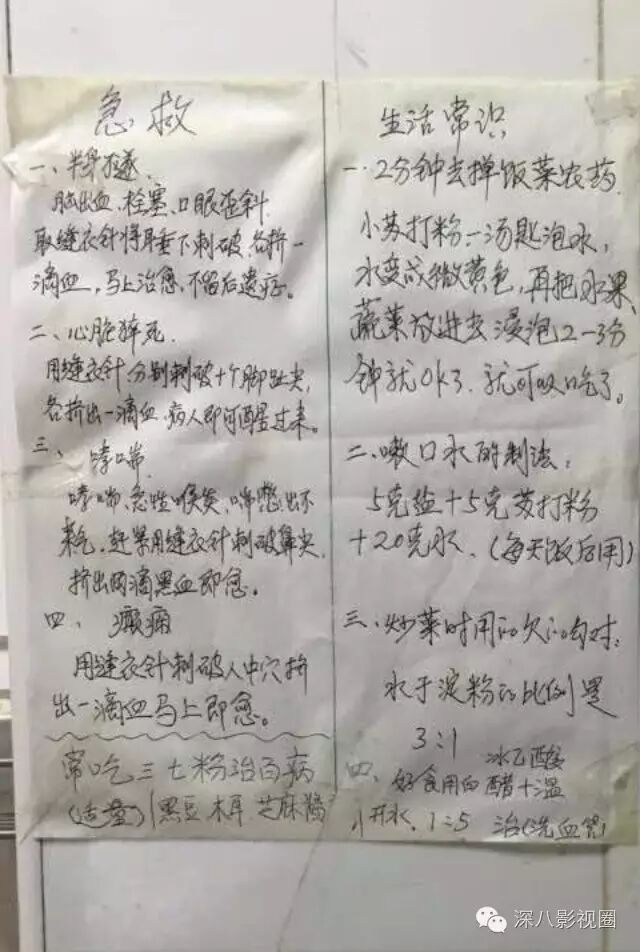 急救
一、半身不遂.
脑出血、栓塞、口眼歪斜
取缝衣针将耳垂下刺破、各挤一
滴血，马上治愈、不留后遗症。
二、心脏猝死.
用缝衣针分别刺破十个脚趾尖，
各挤出一滴血、病人即可醒过来。
三、哮喘
哮喘、急性喉炎、喘憋、出不
来气、赶紧用缝衣针刺破鼻尖、
挤出两滴黑血即愈。
四、癫痫
用缝衣针刺破人中穴挤
出一滴血马上即愈。
常吃三七粉治百病
(适量) 黑豆 木耳 芝麻酱
生活常识
一.2分钟去掉饭菜农药.
小苏打粉一汤匙泡水，
水变成微黄色，再把水果、
蔬菜放进去浸泡2-3分
钟就OK了.就可以吃了。
二.嗽口水的制法：
5克盐+5克苏打粉
+20克水.(每天饭后用)
三、炒菜时用的欠的勾对：
水于淀粉的比例是
3:1 冰乙酸
四、好食用白醋+温
开水.1:5 治(洗血管)
深八影视圈